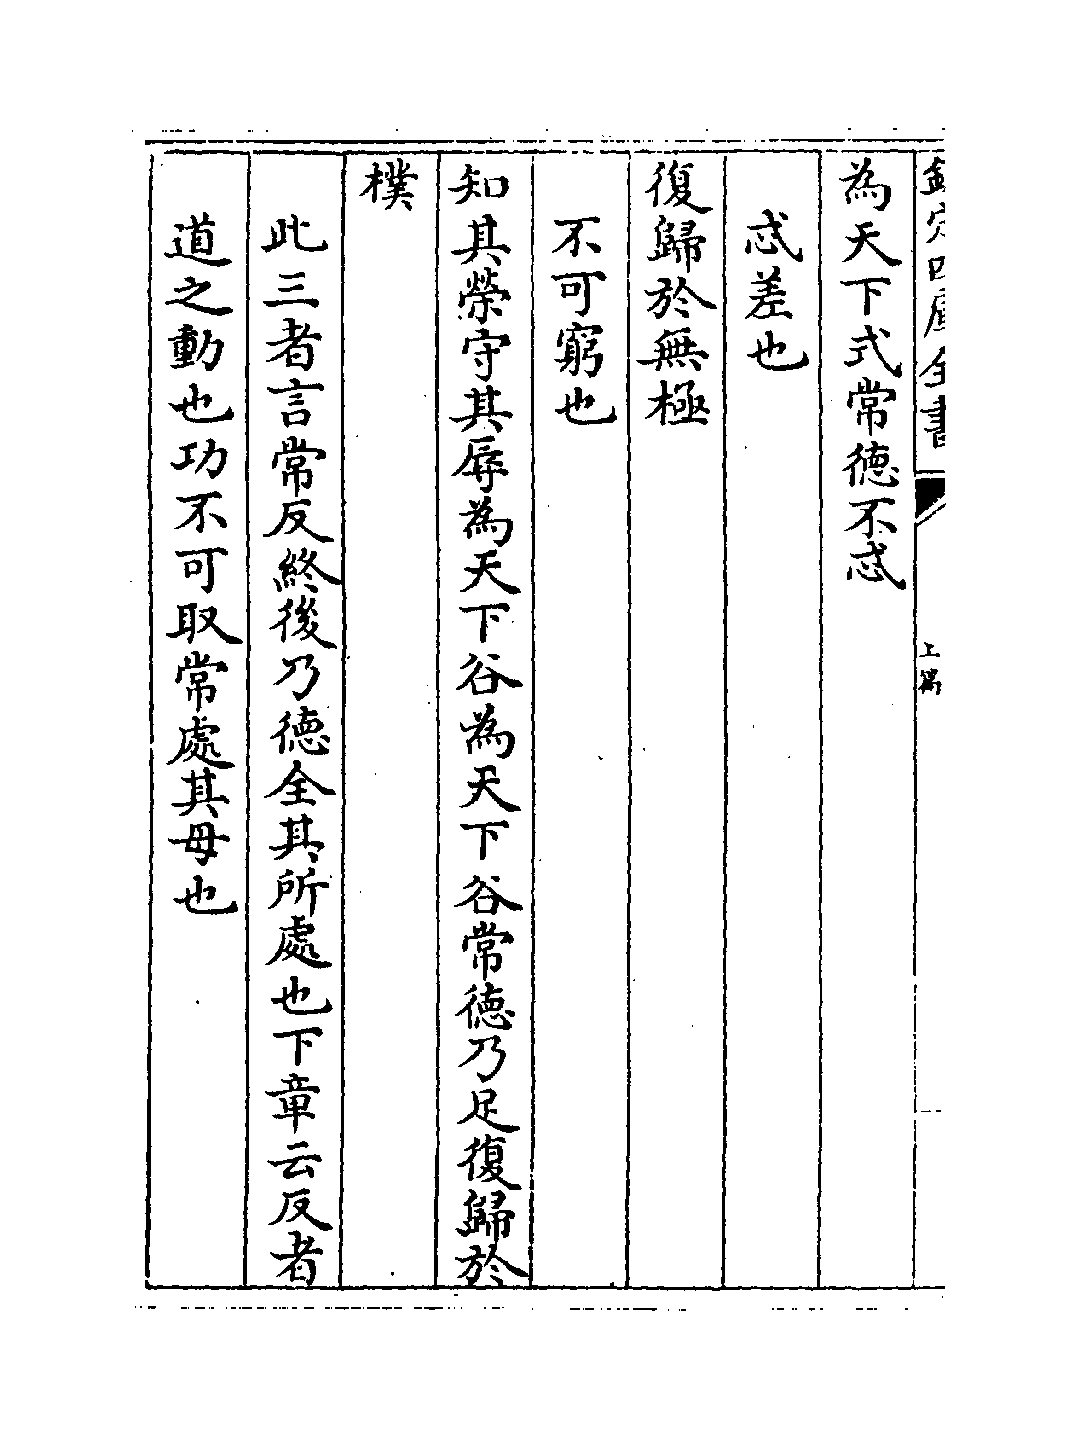 欽定四庫全書
上篇
為天下式常德不忒
忒差也
復歸於無極
不可窮也
知其榮守其辱為天下谷為天下谷常德乃足復歸於
樸
此三者言常反終後乃德全其所處也下章云反者
道之動也功不可取常處其母也